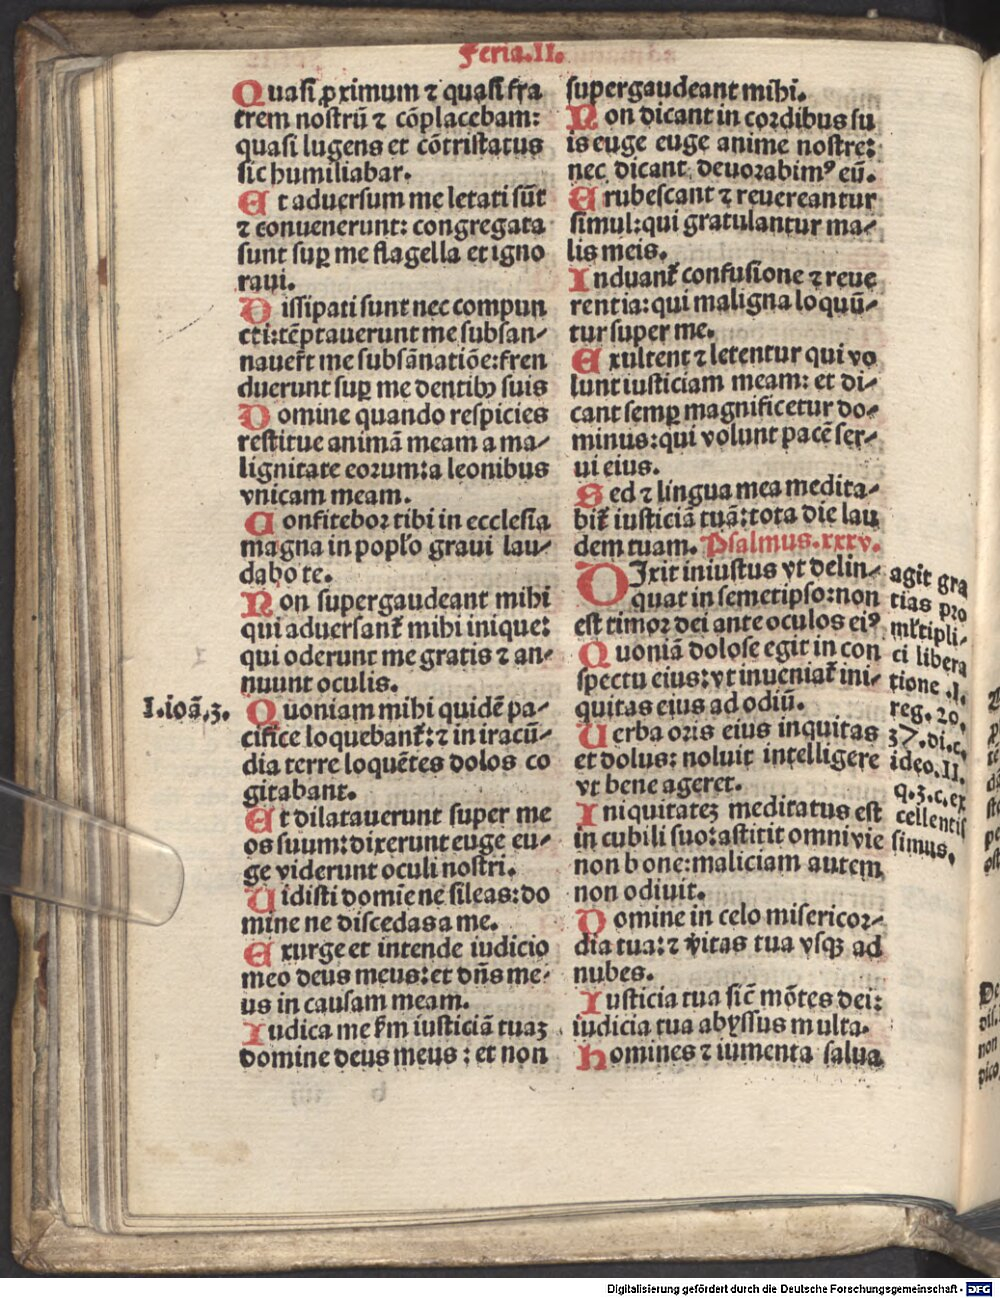 Feria.II.
Quasi ꝓximum ⁊ quasi fra
trem nostrū ⁊ cōplacebam:
quasi lugens et cōtristatus
sic humiliabar.
Et aduersum me letati sūt
⁊ conuenerunt: congregata
sunt suꝑ me flagella et igno
raui.
Dissipati sunt nec compun
cti:tēptauerunt me subsan-
nauer̄t me subsānatiōe:fren
duerunt suꝑ me dentibꝫ suis
Domine quando respicies
restitue animā meam a ma-
lignitate eorum:a leonibus
vnicam meam.
Confitebor tibi in ecclesia
magna in popl̄o graui lau-
dabo te.
Non supergaudeant mihi
qui aduersant̄ mihi inique:
qui oderunt me gratis ⁊ an-
nuunt oculis.
I.ioā.3.
Quoniam mihi quidē pa-
cifice loquebant̄:⁊ in iracū-
dia terre loquētes dolos co
gitabant.
Et dilatauerunt super me
os suum:dixerunt euge eu-
ge viderunt oculi nostri.
Uidisti domīe ne sileas:do
mine ne discedas a me.
Exurge et intende iudicio
meo deus meus:et dn̄s me-
us in causam meam.
Iudica me s̄m iusticiā tuaꝫ
domine deus meus : et non
supergaudeant mihi.
Non dicant in cordibus su
is euge euge anime nostre:
nec dicant deuorabimꝰ eū.
Erubescant ⁊ reuereantur
simul:qui gratulantur ma-
lis meis.
Induant̄ confusione ⁊ reue
rentia:qui maligna loquū-
tur super me.
Exultent ⁊ letentur qui vo
lunt iusticiam meam: et di-
cant semꝑ magnificetur do-
minus:qui volunt pacē ser-
ui eius.
Sed ⁊ lingua mea medita-
bit̄ iusticiā tuā:tota die lau
dem tuam. Psalmus.xxxv.
DIxit iniustus vt delin-
quat in semetipso:non
est timor dei ante oculos eiꝰ
Quoniā dolose egit in con
spectu eius:vt inueniat̄ ini-
quitas eius ad odiū.
Uerba oris eius inquitas
et dolus: noluit intelligere
vt bene ageret.
Iniquitateꝫ meditatus est
in cubili suo:astitit omni vie
non bone:maliciam autem
non odiuit.
Domine in celo misericor-
dia tua:⁊ v̄itas tua vsqꝫ ad
nubes.
Iusticia tua sic̄ mōtes dei:
iudicia tua abyssus multa.
Homines ⁊ iumenta salua
agit gra
tias pro
ml̄tipli-
ci libera
tione .I.
reg. 20.
37.di.c.
ideo.II.
q.3.c.ex
cellentis
simus.